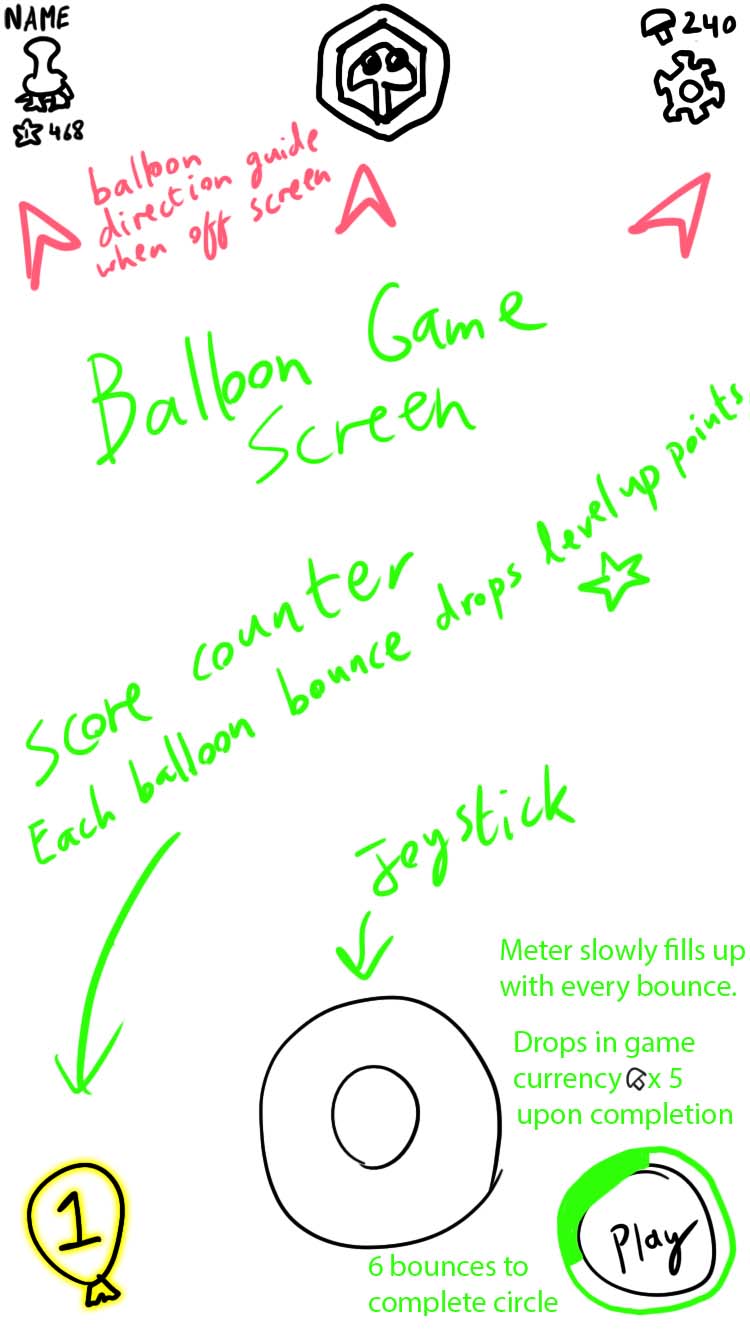 NAME
240
1 468
balloon
direction guide
when off screen
Balloon Game
Screen
Score counter
Each balloon bounce drops level up points
Joystick
Meter slowly fills up
with every bounce.
Drops in game
currency x 5
upon completion
1
Play
6 bounces to
complete circle